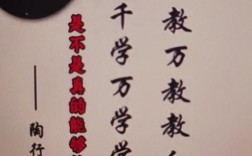 教万教教
千学万学学
是不是真的能够
——陶行